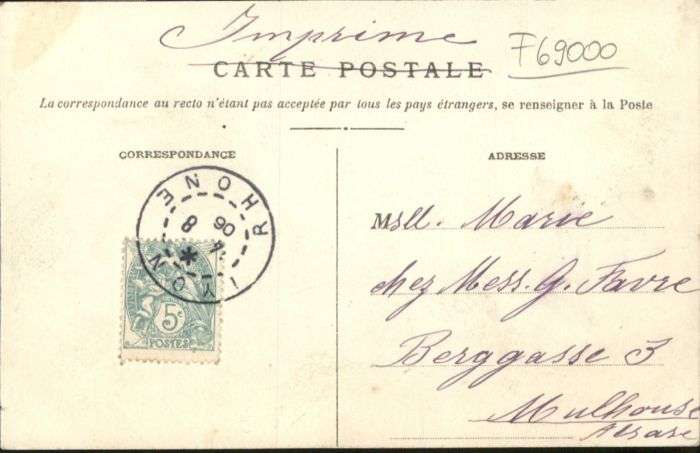 Imprimé
F69000
CARTE POSTALE
La correspondance au recto n'étant pas acceptée par tous les pays étrangers, se renseigner à la Poste
CORRESPONDANCE
ADRESSE
LYON RHONE
8
06
5c
POSTES
Mlle. Marie
chez Mess. G. Favre
Berggasse 3
Mulhouse
Alsace